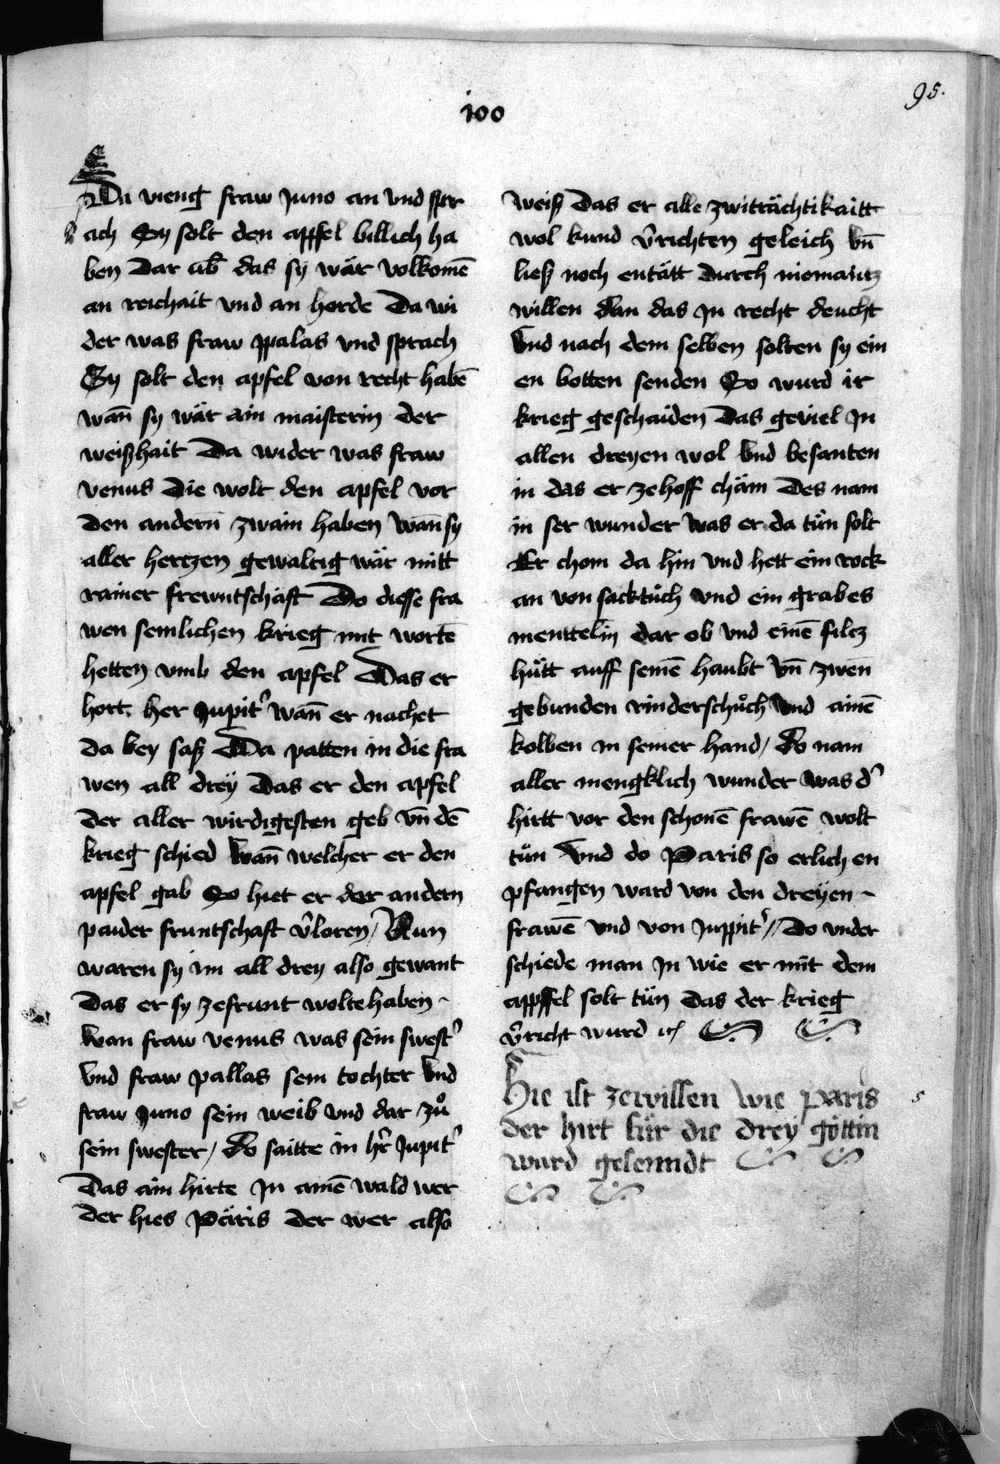 95.
100
Da vieng fraw Juno an vnd spr
ach Sy solt den apffel billich ha
ben Dar vb̄ das sy wär volkomē
an reichait vnd an horde Da wi
der was fraw ppalas vnd sprach
Sy solt den apfel von recht habē
wan̄ sy wär ain maisterin der
weißhait Da wider was fraw
venus die wolt den apfel vor
den andern̄ zwain haben wan̄ sy
aller hertzen gewaltig wär mitt
rainer frewntschäft Do diesse fra
wen semlichen krieg mit wortē
hetten vmb den apfel Das er
hort. her Jupit̛ wan̄ er nachet
da bey saß Da patten in die fra
wen all drey Das er den apfel
der aller wirdigesten geb vn̄ dē
krieg schied wan̄ welcher er den
apfel gab So hiet er der andern
paider fruntschaft v̛loren / Nun
waren sy im all drey also gewant
Das er sy zefrunt wolte haben
wan fraw venus was sein swest̛
vnd fraw pallas sein tochter vnd
fraw Juno sein weib vnd dar zů
sein swester / Do saitte in hr̄ Jupit̛
Das ain hirte Jn ainē wald wer
der hies Päris der wer also
weiß Das er alle zwiträchtikaitt
wol kund v̛richten geleich vn̄
ließ noch entätt durch niemantz
willen dan das Jn recht deucht
vnd nach dem selben solten sy ein
en botten senden So wurd ir
krieg geschaiden Das geviel Jn
allen dreyen wol vnd besanten
in das er zehoff chäm Des nam
in ser wunder was er da tůn solt
Er chom da hin vnd hett ein rock
an von sacktůch vnd ein grabes
menttelin dar ob vnd einē filcz
hůtt auff seinē haubt vn̄ zwen
gebunden rinderschůch vnd ainē
kolben in seiner hand / Do nam
aller mengklich wunder was d̛
hirtt vor den schonē frawē wolt
tůn vnd do Paris so erlich en
pfangen ward von den dreyen
frawē vnd von Juppit̛ // Do vnder
schiede man Jn wie er mit dem
appffel solt tůn das der krieg
v̛richt wurd
Hie ist zewissen wie paris
der hirt für die drey göttin
ward gesenndt